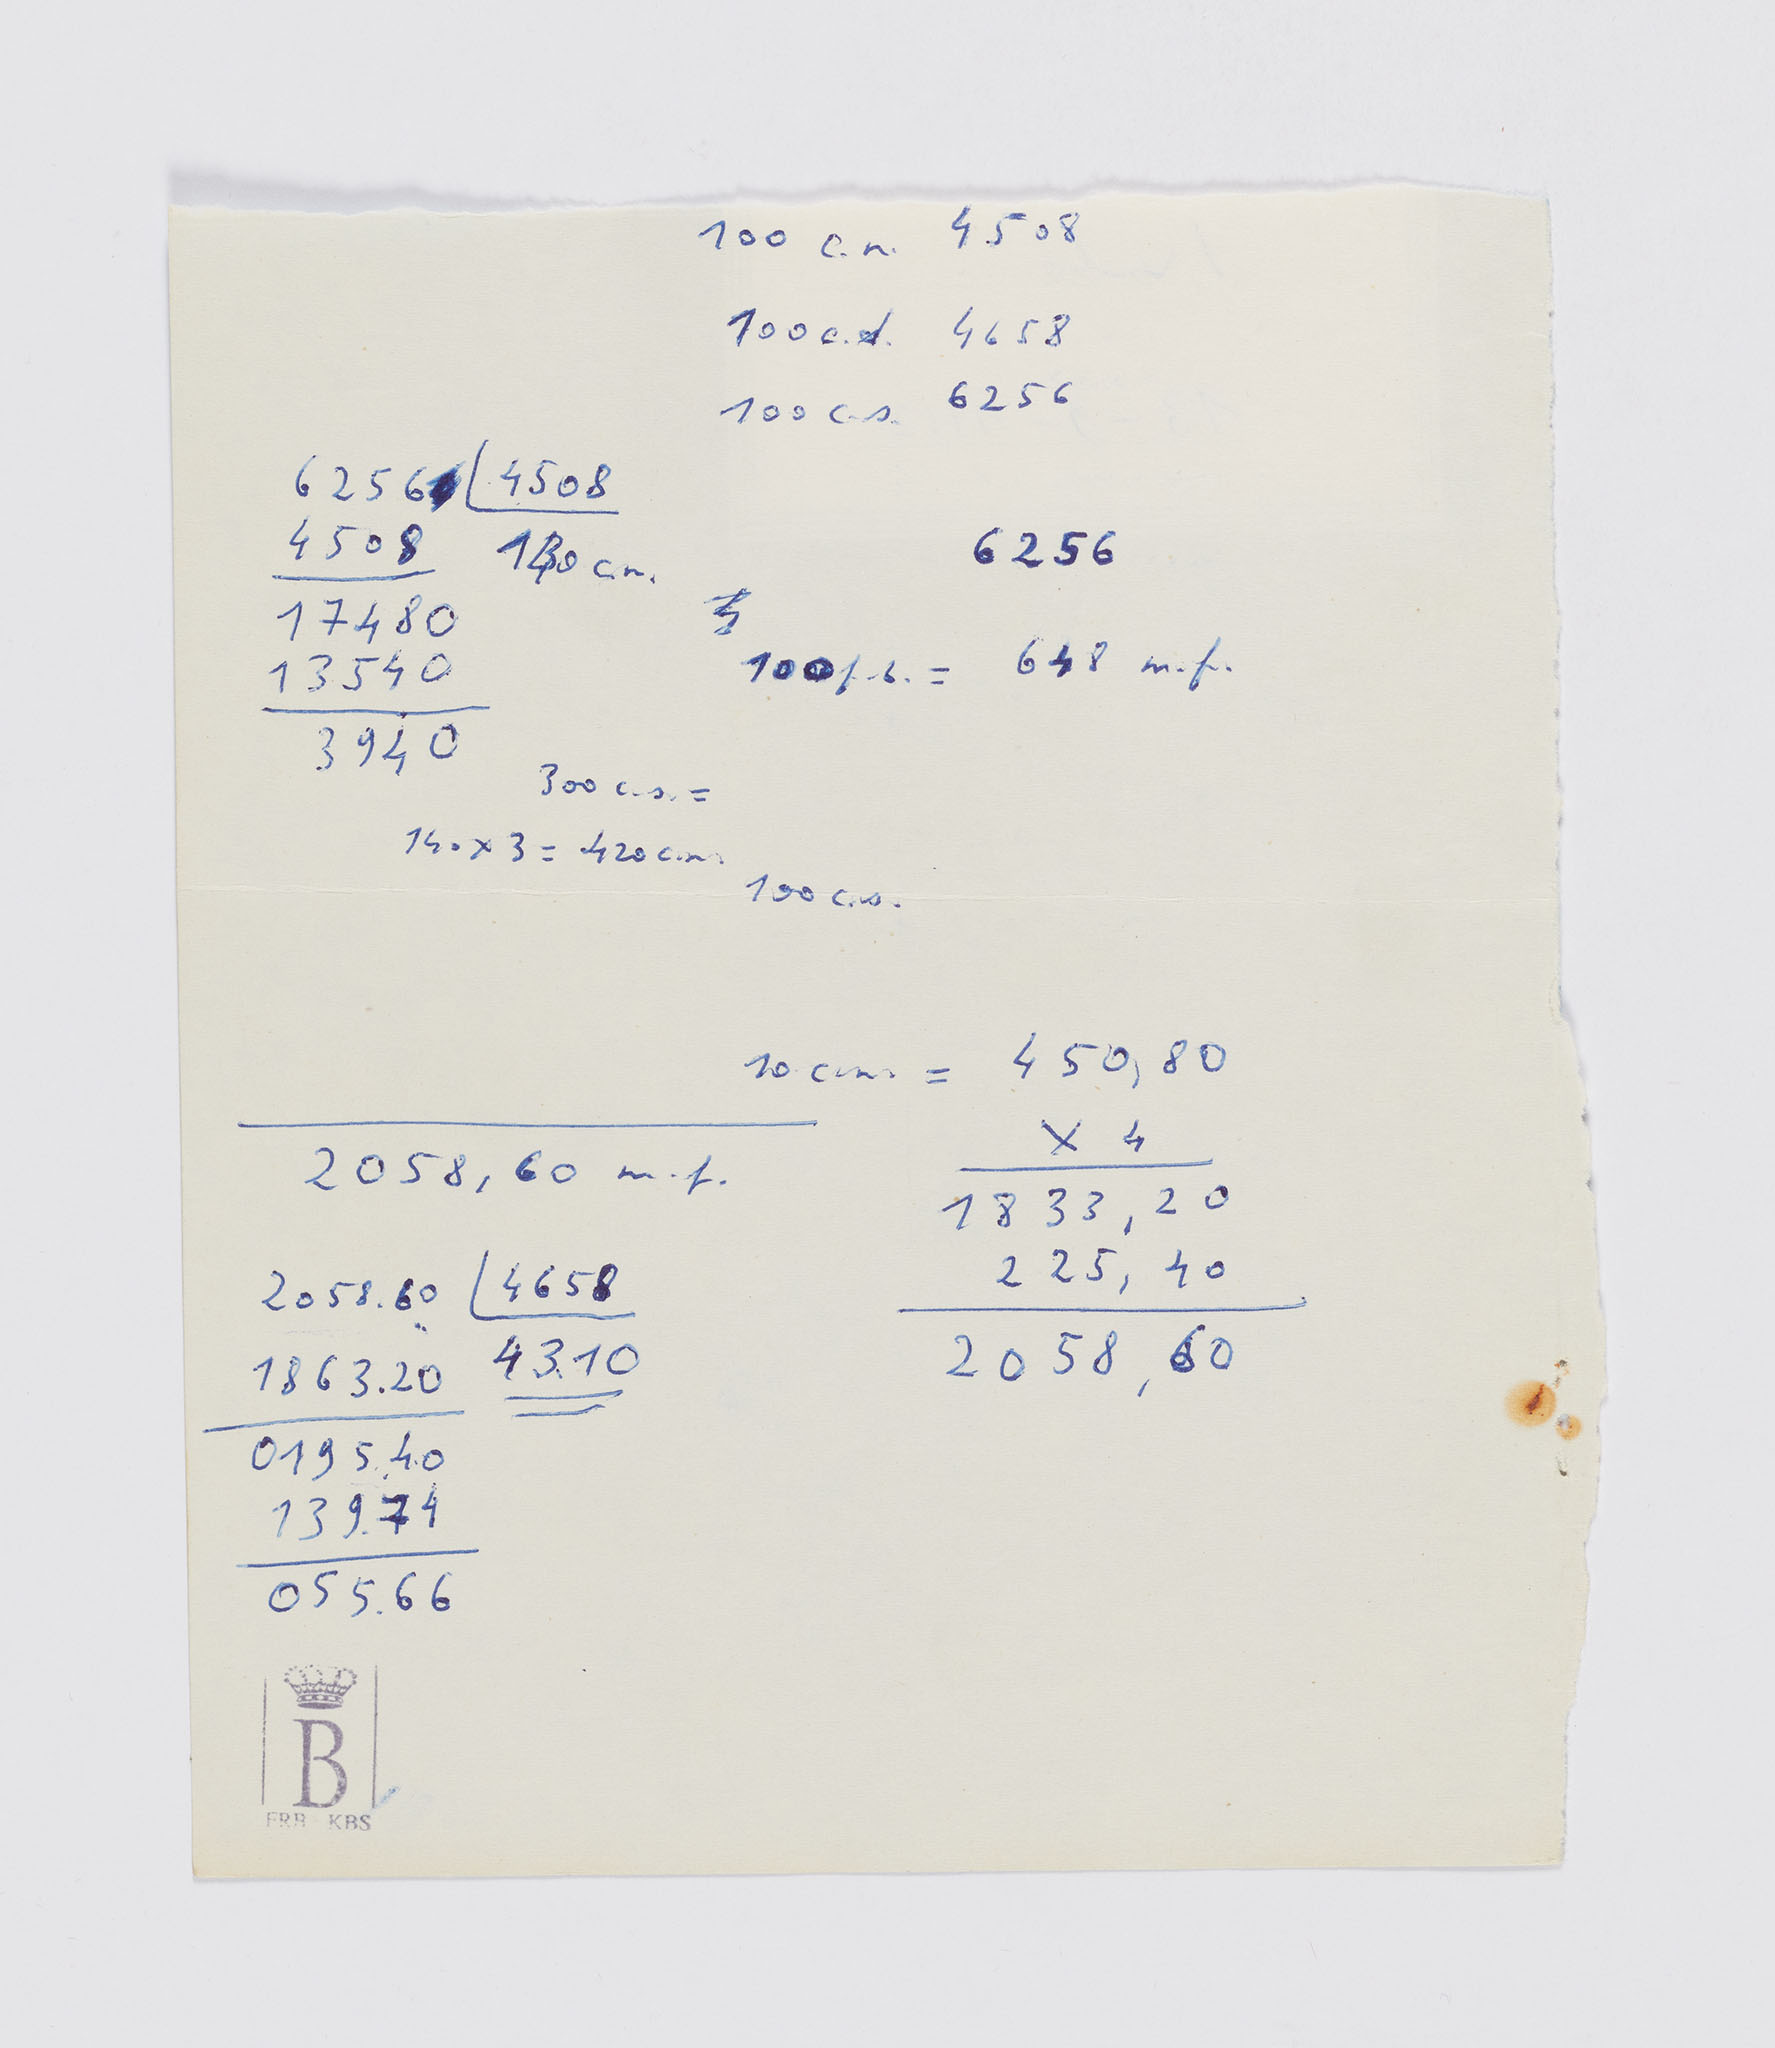 100 c.n. 4508
100 c.d. 4658
100 c.s. 6256
6256 4508
4508 140 c.n.
17480
13540
3940
6256
100 f.s. = 648 m.f.
300 c.s. =
140 x 3 = 420 c.n.
100 c.s.
10 c.n. = 450,80
X 4
1833,20
225,40
2058,60
2058,60 m.f.
2058.60 4658
1863.20 43.10
0195.40
139.74
055.66
B
FRB KBS